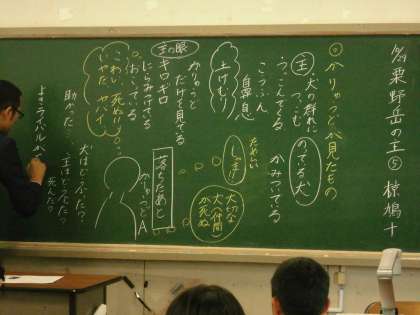 多粟野岳の王⑤ 椋鳩十
◎かりゅうどが見たもの
王 犬の群れに
つっこむ
うってくる
かみついてる
のってる犬
こうふん
鼻息
土けむり
ためらい
しゃげき
大切な
犬(仲間)
が死ぬ
王の眼
かりゅうど
だけを見てる
ギロギロ
にらみつけている
おいている
こわい、死ぬぅ
いやだ ヤバイ
落ちたあと
かりゅうどA
助かった…
犬はどうなった?
王はどうなった?
死んだ?
よきライバルか